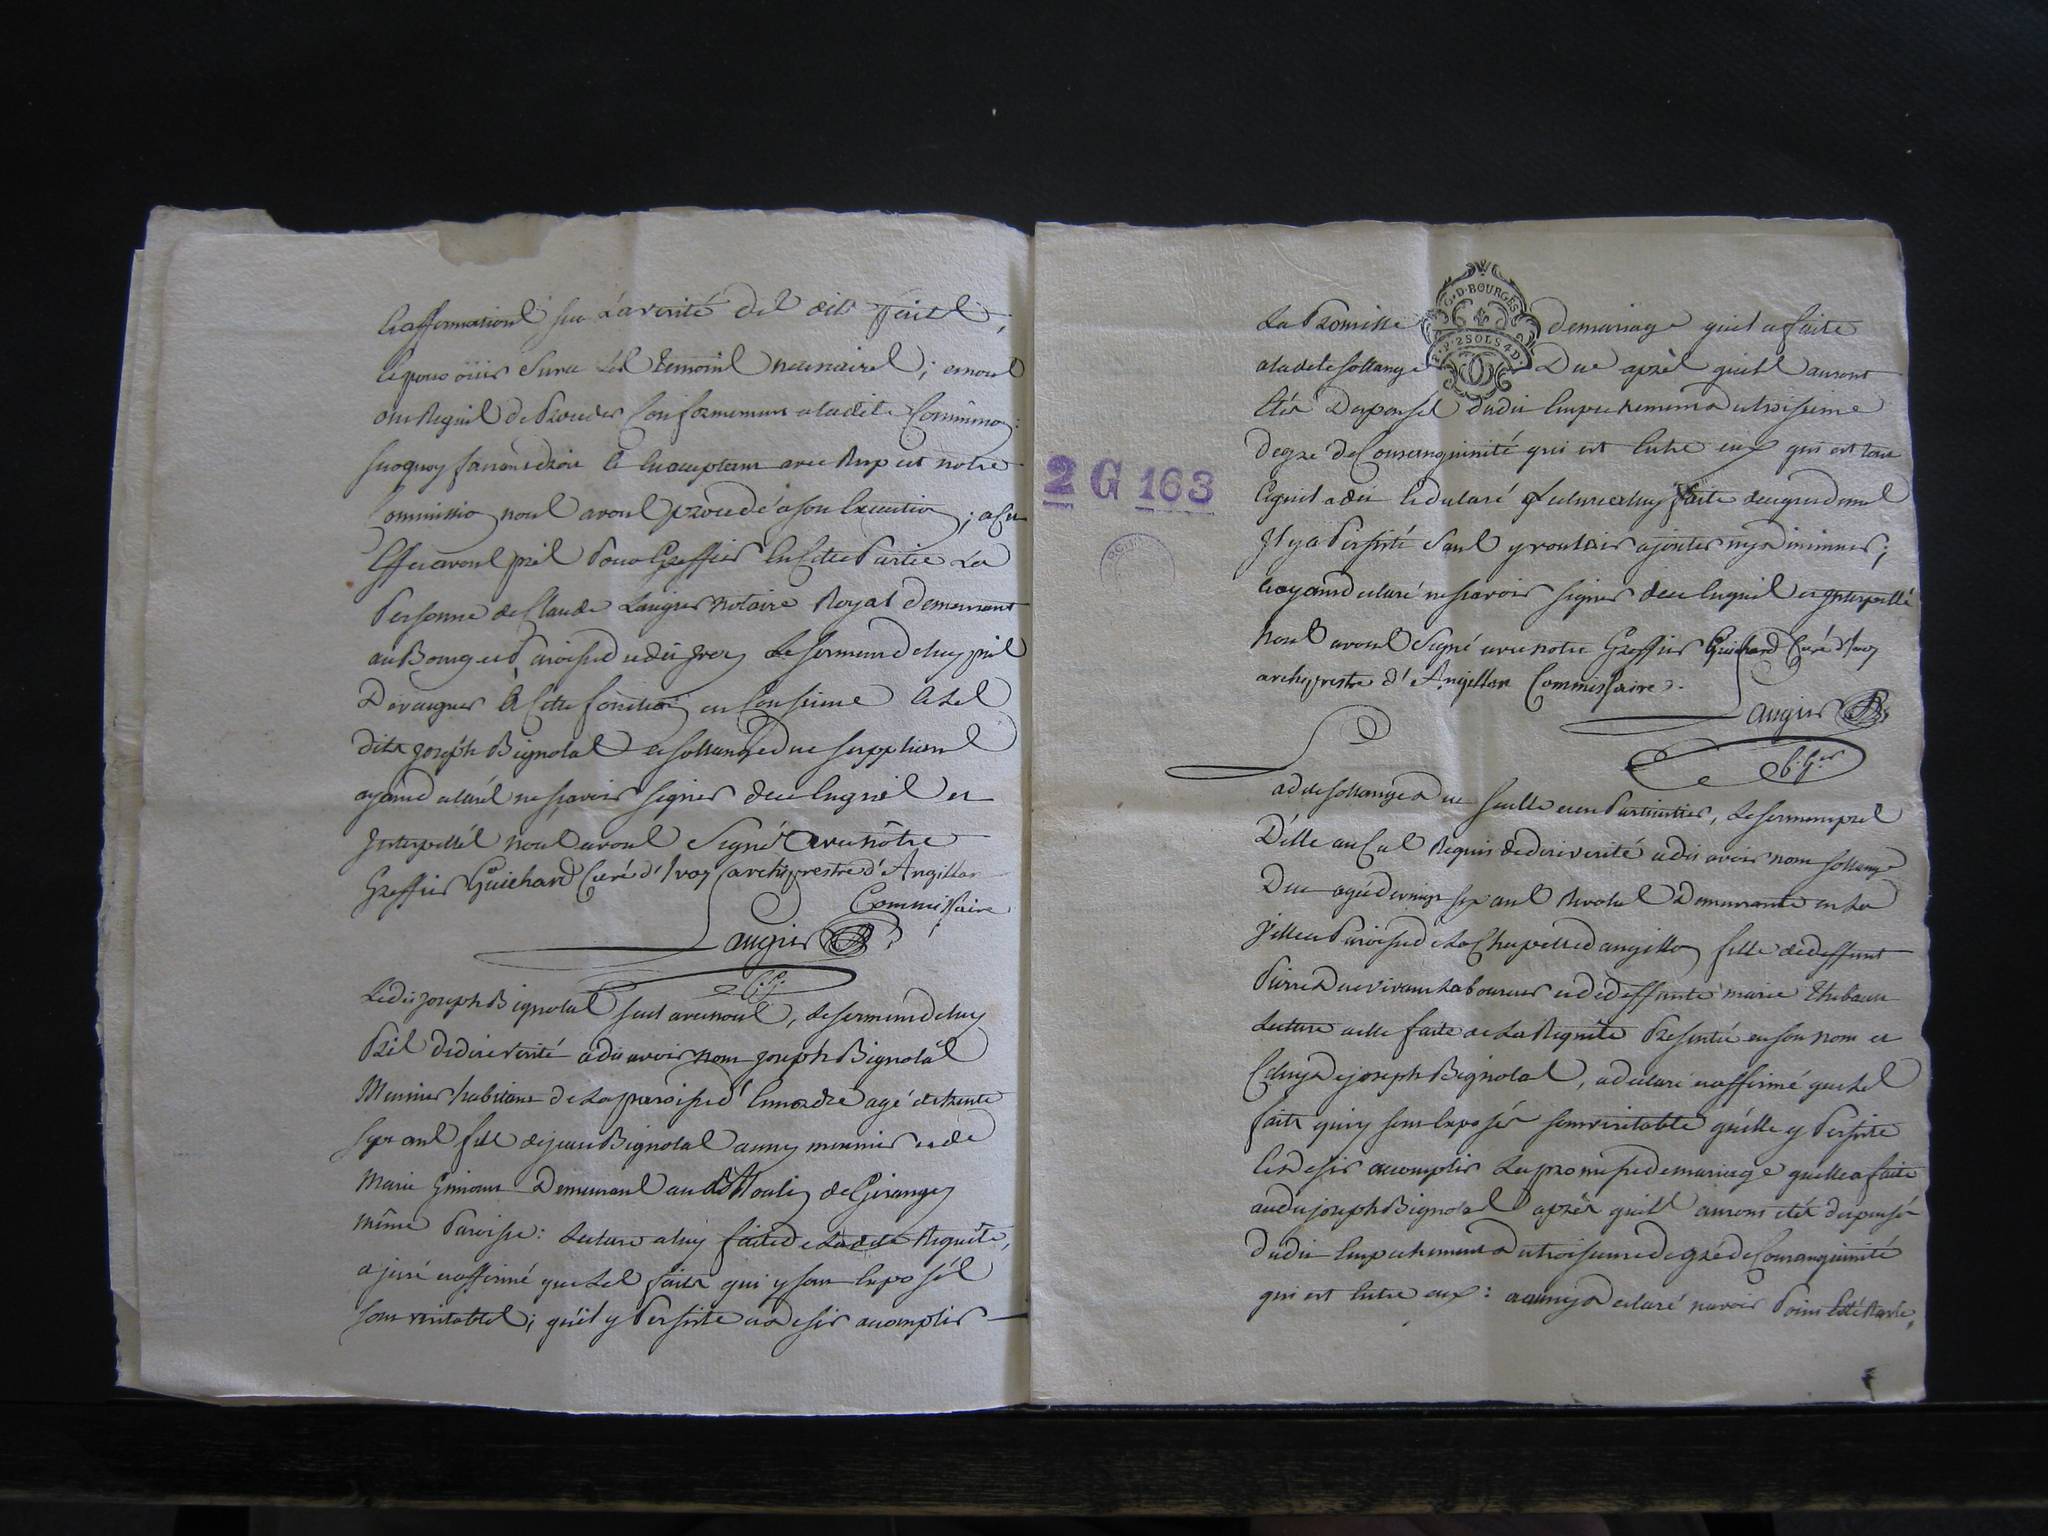 affirmations sur la verité des dits faits,
et pour ouir sur ce les temoins necessaires; et nous
ont Requis de Proceder Conformement a ladite Commission:
surquoy faisant droit et en acceptant avec Respect notre
Commission nous avons procedé a son Execution; a cet
Effet avons pris Pour Greffier En Cette Partie La
Personne de Claude Laugier notaire Royal demeurant
au Bourg et Paroisse dudit Ivoy Le serment de luy pris
De vacquer à Cette fonction en Conscience et les
dits joseph Bignolas et sollange Duc suppliens
ayant declarés ne sçavoir signer de ce Enquis et
Interpellés nous avons Signé avec nôtre
Greffier Guichard Curé d'Ivoy archiprestre d'Angillon
Commissaire
Laugier
Ledit joseph Bignolas seul avec nous, le serment de luy
Pris de dire verité a dit avoir nom joseph Bignolas
Meunier habitant de La paroisse d'Ennordre agé de trente
sept ans fils de jean Bignolas aussy meunier et de
Marie Demeurant au dit Moulin de Girangy
même Paroisse: Lecture a luy faite de Ladite Requête,
a juré et affirmé que Les faits qui y sont Exposés
sont veritables; qu'il y Persiste et desir accomplir
2 G 163
G. D. BOURGES
2 SOLS 4 D.
La Promesse de mariage qu'il a faite
a ladite sollange Duc après qu'ils auront
Etés Dispensés dudit Empechement du troisieme
degre de Consanguinité qui est Entre eux qui est tout
Ce qu'il a dit et declaré Lecture a luy faite
Il y a Persisté sans y vouloir ajouter ny diminuer;
et ayant declaré ne sçavoir signer de ce Enquis et Interpellé
Nous avons Signé avec notre Greffier Guichard Curé d'Ivoy
archiprestre d'Angillon Commissaire.
Laugier
Ladite sollange Duc seulle et en Particulier, Le serment pris
D'elle au Cas Requis de dire verité a dit avoir nom sollange
Duc agée de vingt six ans Revolus Demeurante en La
Ville et Paroisse de La Chapelle d'angillon fille de deffunt
Pierre Duc vivant Laboureur et de deffunte marie Thibault
Lecture a elle faite de La Requête Presentée en son nom et
Celuy de joseph Bignolas, a declaré et affirmé que Les
faits qui y sont Exposés sont veritable qu'elle y Persiste
Et desir accomplir La promesse de mariage qu'elle a faite
audit joseph Bignolas après qu'ils auront etés dispensé
dudit Empechement du troisieme degré de Consanguinité
qui est Entre eux: a aussy declaré n'avoir Point Eté